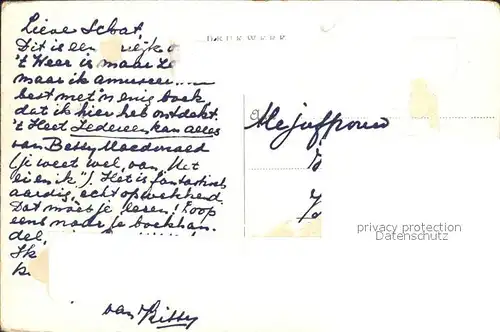 Lieve Schat,
Dit is een
't Weer is maar
maar ik amuseer
best met 'n enig boek
dat ik hier heb ontdekt.
't Heet Iedereen kan alles
van Betty Macdonald
(je weet wel, van "Het
ei en ik"). Het is fantastisch
aardig, echt opwekkend.
Dat moet je lezen! Loop
eens naar je boekhan
del,
van Kitty
Mejuffrouw
privacy protection
Datenschutz